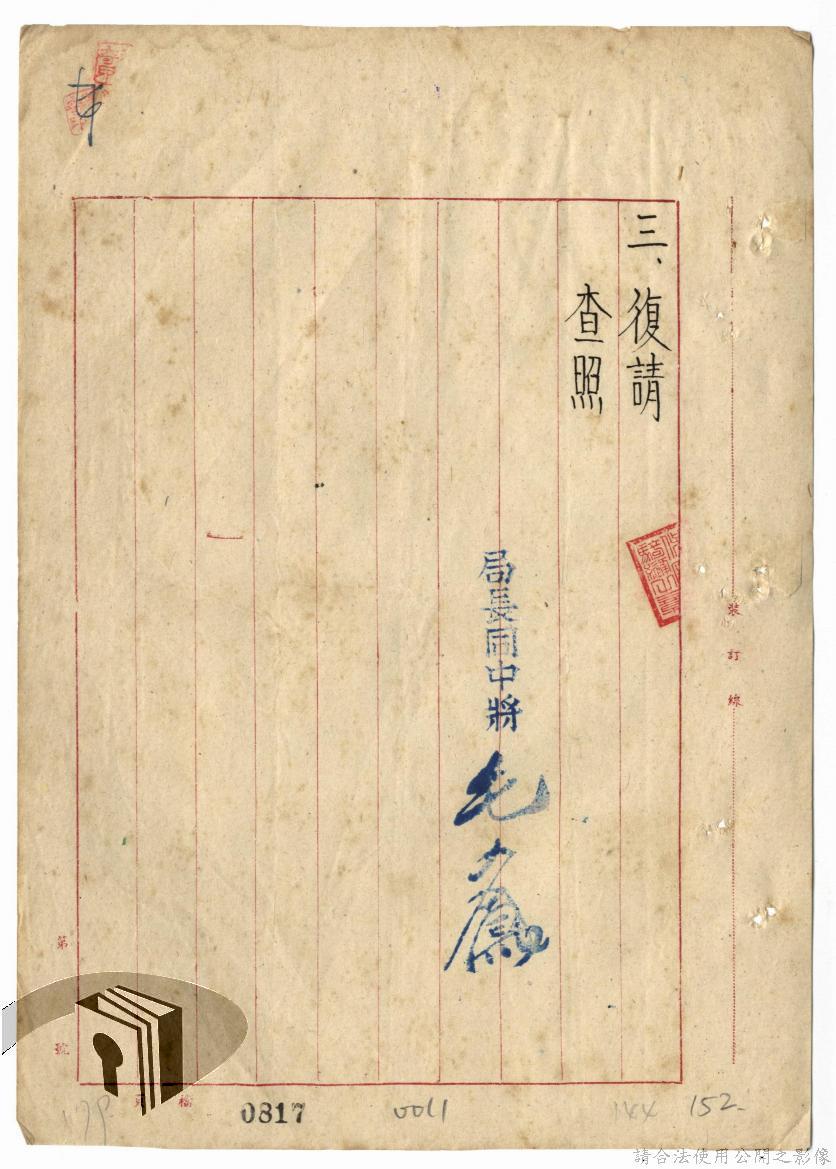 三、復請
查照
局長同中將
毛人鳳
裝訂線
第
號
0817
0011
144
152-
請合法使用公開之影像